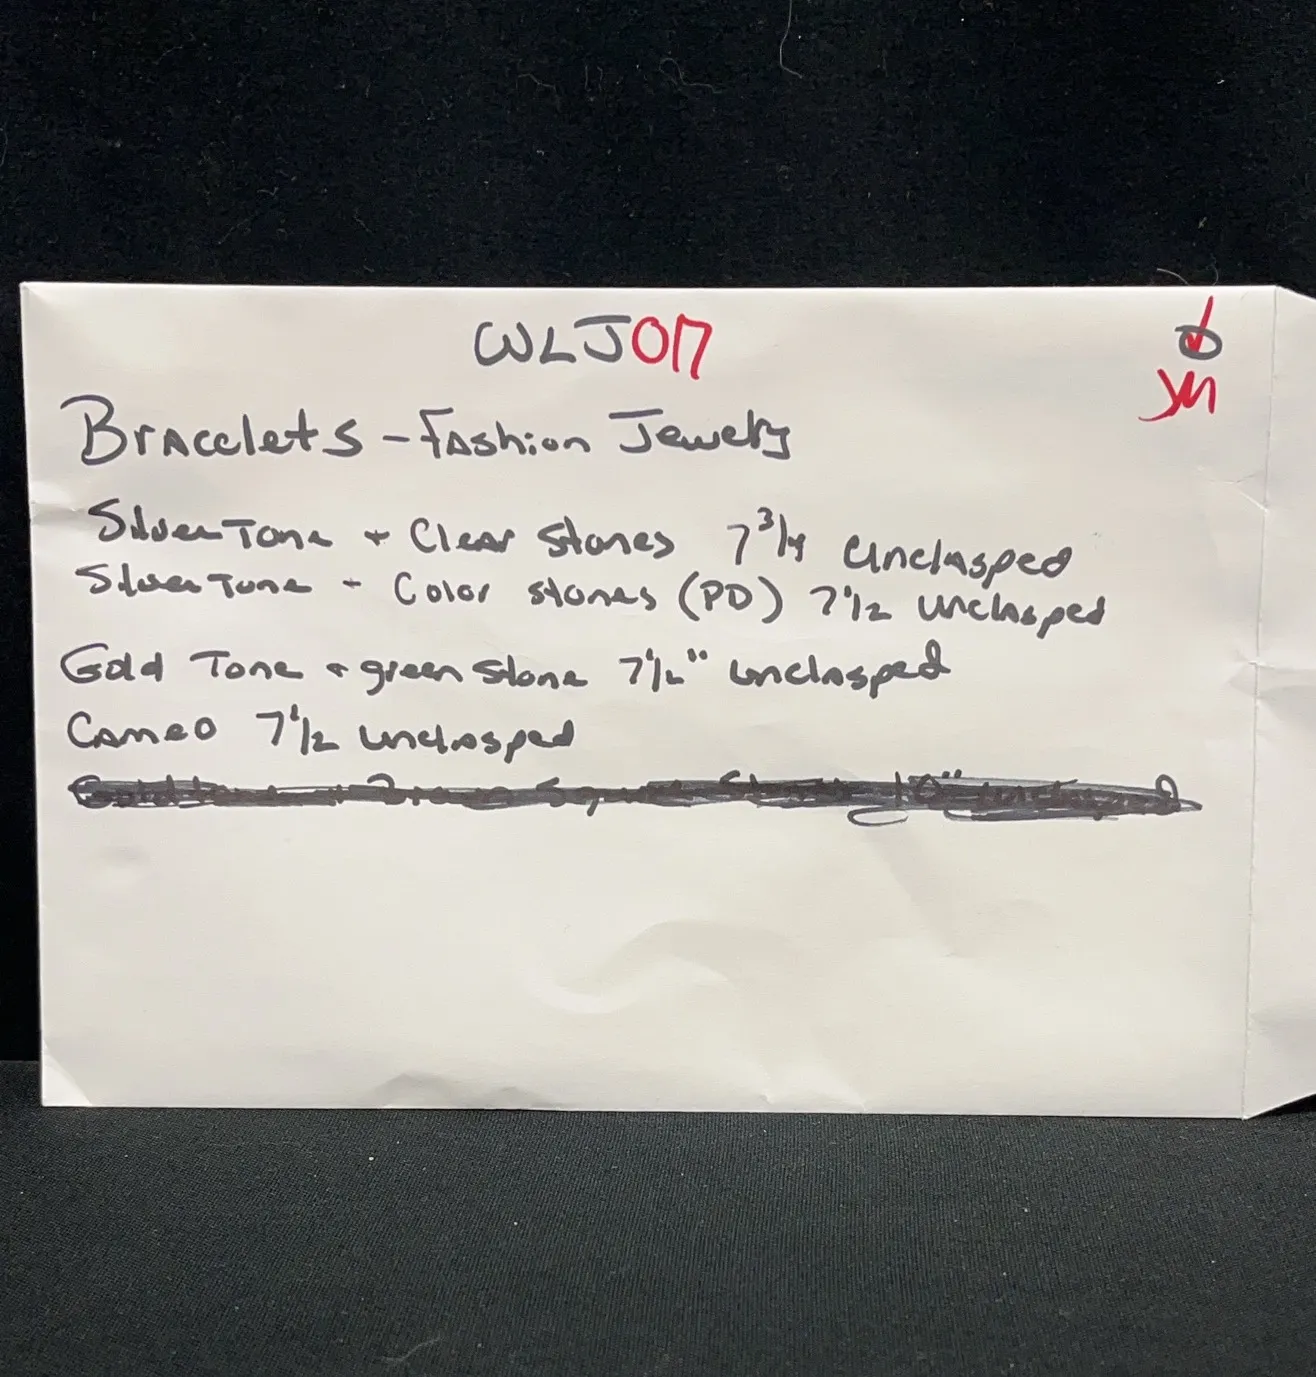 WLJ017
Bracelets - Fashion Jewelry
Silver Tone + Clear Stones 7 3/4 unclasped
Silver Tone - Color stones (PD) 7 1/2 unclasped
Gold Tone + green stone 7 1/2" unclasped
Cameo 7 1/2 unclasped